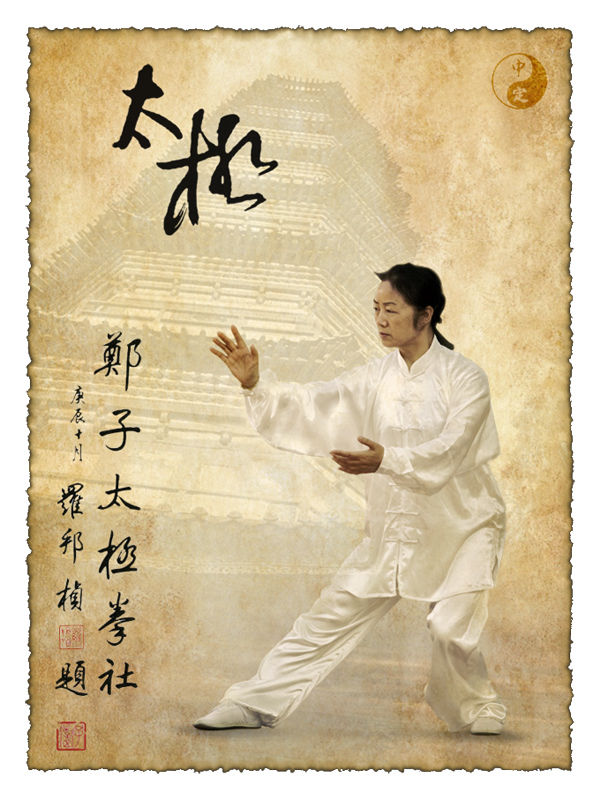 太極
中定
鄭子太極拳社
庚辰十月
羅邦楨題